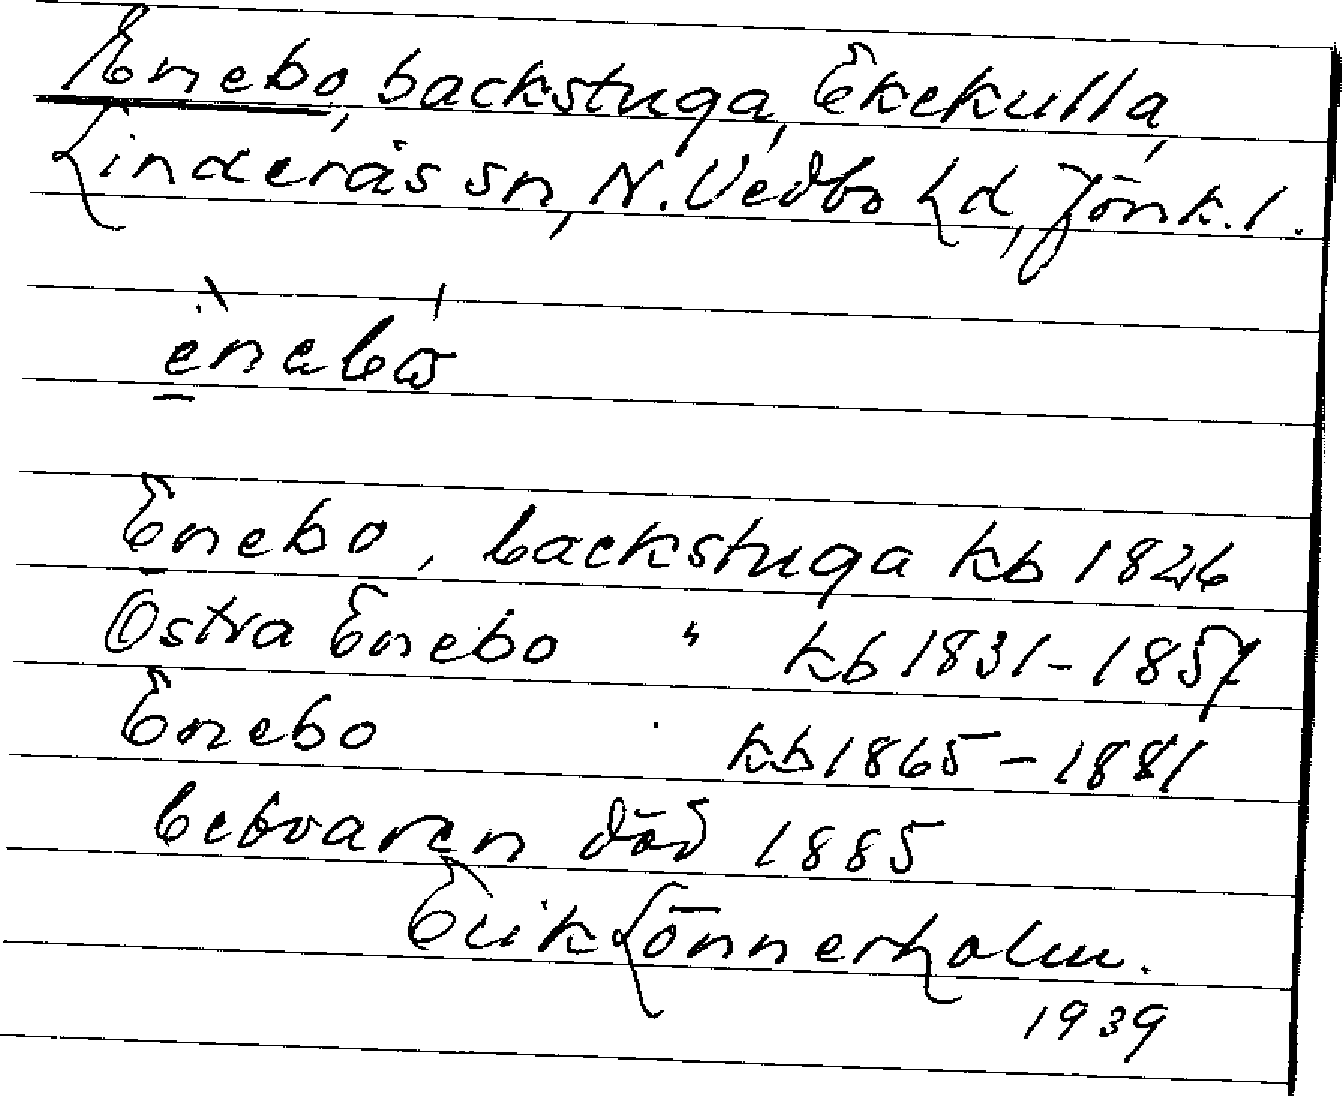 Enebo, backstuga, Ekekulla,
Linderås sn, N. Vedbo hd, Jönk. l.
Enebo, backstuga kb 1826
Östra Enebo " kb 1831-1857
Enebo kb 1865-1881
bebvaren död 1885
Erik Lönnerholm.
1939